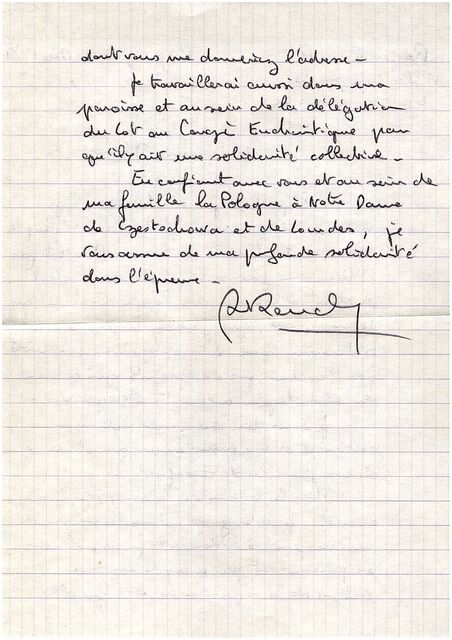 dont vous me donneriez l'adresse -
Je travaillerai aussi dans ma
paroisse et au sein de la délégation
du Lot au Congrè Eucharistique pour
qu'il y ait une solidarité collective -
En confiant avec vous et au sein de
ma famille la Pologne à Notre Dame
de Czestochowa et de Lourdes, je
vous assure de ma profonde solidarité
dans l'épreuve -